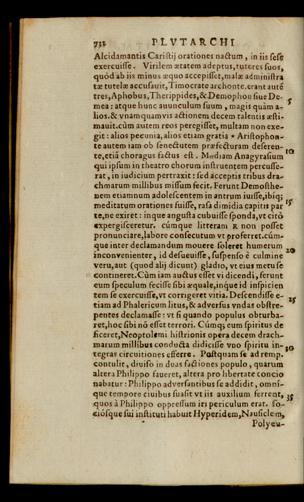 732 PLVTARCHI
Alcidamantis Caristij orationes nactum, in iis sese
exercuisse. Virilem ætatem adeptus, tutores suos,
quòd ab iis minus æquo accepisset, malæ administra
tæ tutelæ accusauit, Timocrate archonte. erant autē
tres, Aphobus, Therippides, & Demophon siue De-
mea: atque hunc auunculum suum, magis quàm a- 5
lios. & vnamquamuis actionem decem talentis æsti-
mauit. cùm autem reos peregisset, multam non exe-
git: alios pecunia, alios etiam gratia * Aristophon-
te autem iam ob senectutem præfecturam deseren-
te, etiā choragus factus est. Mœdiam Anagyrasium 10
qui ipsum in theatro chorum instruentem percusse-
rat, in iudicium pertraxit: sed acceptis tribus dra-
chmarum millibus missum fecit. Ferunt Demosthe-
nem etiamnum adolescentem in antrum iuisse, ibiq;
meditatum orationes suisse, rasa dimidia capitis par 15
te, ne exiret: inque angusta cubuisse sponda, vt citò
expergisceretur. cúmque litteram R non posset
pronunciare, labore consecutum vt proferret. cúm-
que inter declamandum mouere soleret humerum
inconvenienter, id desueuisse, suspenso è culmine 20
veru, aut (quod alij dicunt) gladio, vt eius metu se
contineret. Cùm iam auctus esset vi dicendi, ferunt
eum speculum fecisse sibi æquale, inque id inspicien
tem se exercuisse, vt corrigeret vitia. Descendisse e-
tiam ad Phalericum litus, & aduersus vndas obstre- 25
pentes declamasse: vt si quando populus obturba-
ret, hoc sibi nō esset terrori. Cúmq; eum spiritus de
ficeret, Neoptolemi histrionis opera decem drach-
marum millibus conducta didicisse vno spiritu in-
tegras circuitiones efferre. Postquam se ad remp. 30
contulit, diuiso in duas factiones populo, quarum
altera Philippo faueret, altera pro libertate concio
nabatur: Philippo aduersantibus se addidit, omni-
que tempore ciuibus suasit vt iis auxilium ferrent,
quos à Philippo oppressum iri periculum erat. so- 35
ciósque sui instituti habuit Hyperidem, Nausiclem,
Polyeu-